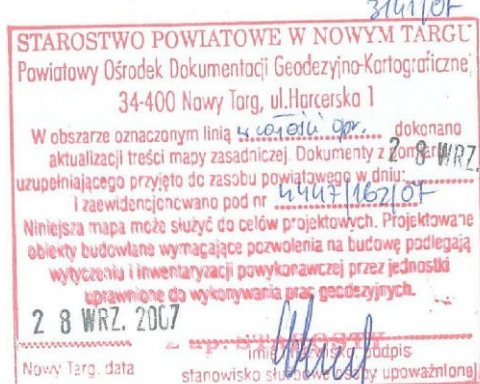 3141/07
STAROSTWO POWIATOWE W NOWYM TARGU
Powiatowy Ośrodek Dokumentacji Geodezyjno-Kartograficznej
34-400 Nowy Targ, ul.Harcerska 1
W obszarze oznaczonym linią w całości opr. dokonano
aktualizacji treści mapy zasadniczej. Dokumenty z pomiaru
uzupełniającego przyjęto do zasobu powiatowego w dniu: 28 WRZ.
i zaewidencjonowano pod nr 4447/162/07
Niniejsza mapa może służyć do celów projektowych. Projektowane
obiekty budowlane wymagające pozwolenia na budowę podlegają
wytyczeniu i inwentaryzacji powykonawczej przez jednostki
uprawnione do wykonywania prac geodezyjnych.
28 WRZ. 2007
z up. STAROSTY
Nowy Targ, data
imię nazwisko, podpis
stanowisko służbowe osoby upoważnionej